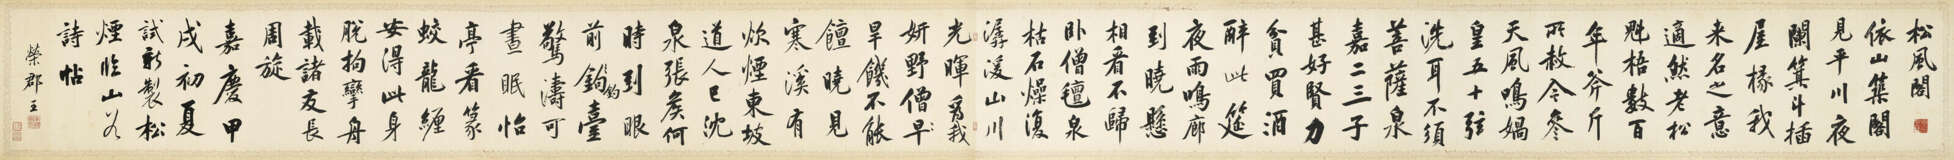 松風閣
依山築閣
見平川夜
闌箕斗插
屋椽我
来名之意
適然老松
魁梧數百
年斧斤
所赦今參
天風鳴媧
皇五十弦
洗耳不須
菩薩泉
嘉二三子
甚好賢力
貧買酒
醉此筵
夜雨鳴廊
到曉懸
相看不歸
卧僧氊泉
枯石燥復
潺湲山川
光暉為我
妍野僧早
旱饑不能
饘曉見
寒溪有
炊煙東坡
道人已沈
泉張矦何
時到眼
前鈎釣臺
驚濤可
晝眠怡
亭看篆
蛟龍纏
安得此身
脫拘攣舟
載諸友長
周旋
嘉慶甲
戌初夏
試新製松
煙臨山谷
詩帖
榮郡王